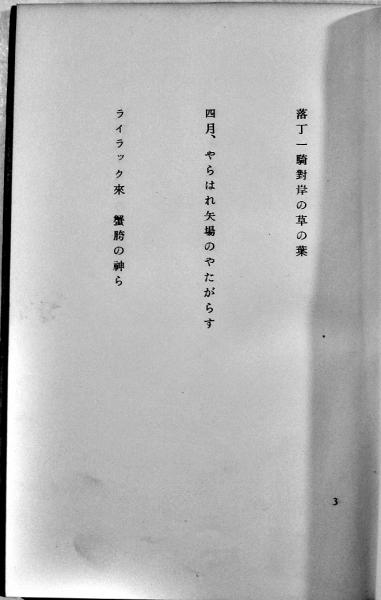 落丁一騎對岸の草の葉
四月、やらはれ矢場のやたがらす
ライラック來　蟹胯の神ら
3